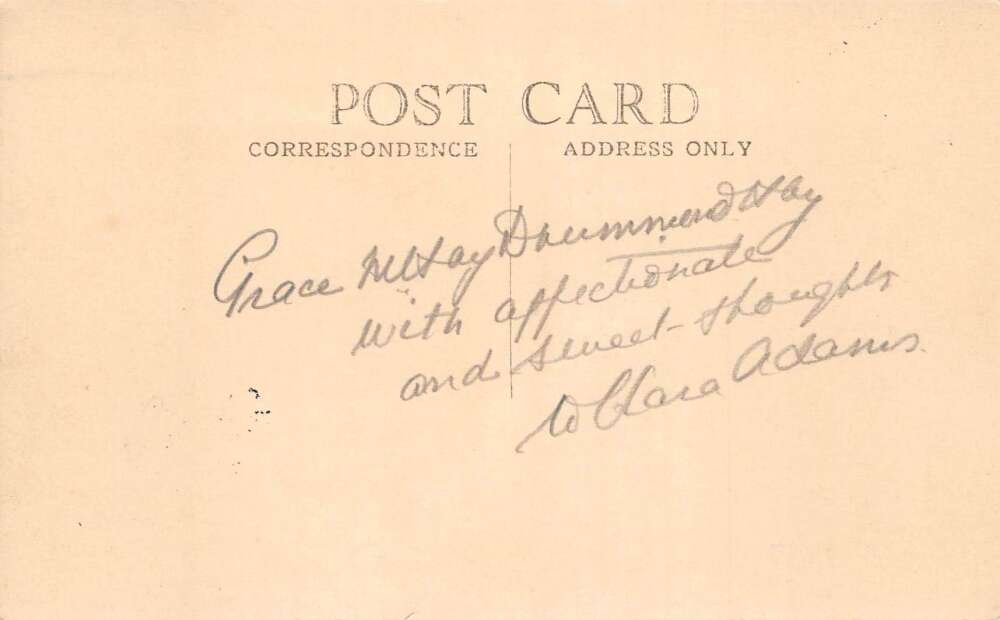 POST CARD
CORRESPONDENCE
ADDRESS ONLY
Grace M Hay Drummond Hay
with affectionate
and sweet thoughts
to Clara Adams.